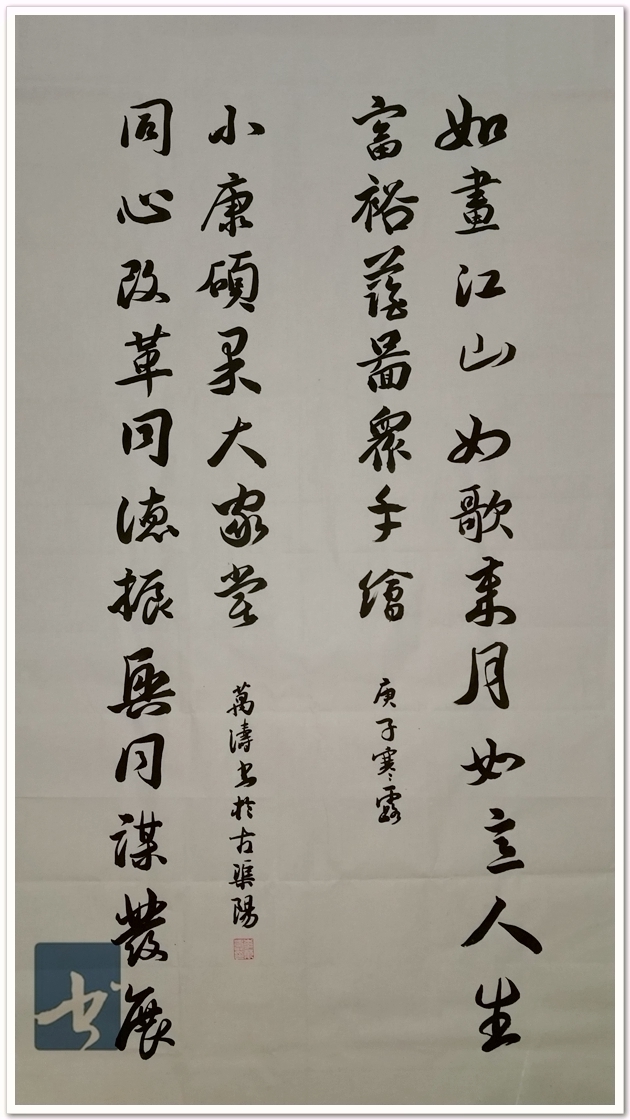 如畫江山如歌歲月如意人生
富裕藍圖眾手繪
庚子寒露
同心改革同德振興同謀發展
小康碩果大家嘗
萬濤書於古渠陽
书